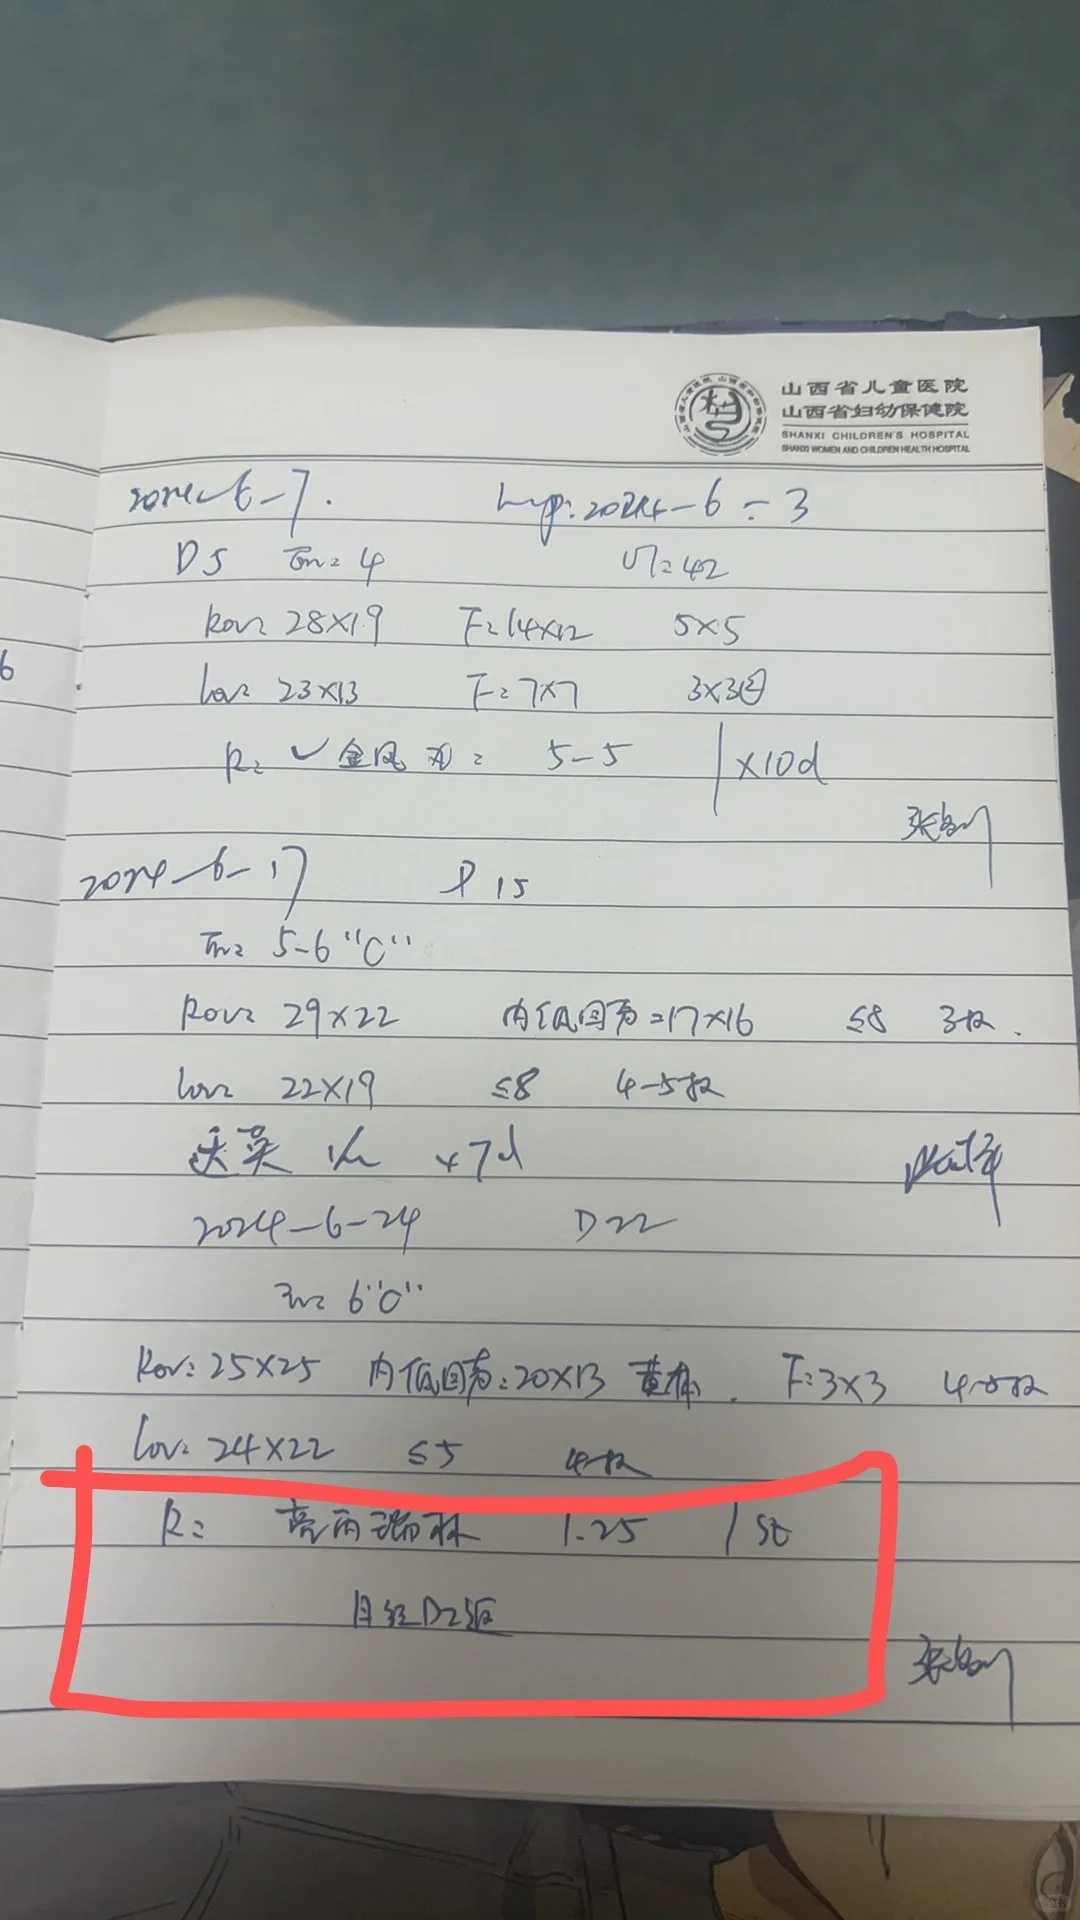 山西省儿童医院
山西省妇幼保健院
SHANXI CHILDREN'S HOSPITAL
SHANXI WOMEN AND CHILDREN HEALTH HOSPITAL
2024-6-7. Lmp: 2024-6-3
D5 Em: 4 UT: 42
Rov: 28×19 F=14×12 5×5
Lov: 23×13 F=7×7 3×3
R: ✓金凤丸: 5-5 /×10d
2024-6-17 D15
Em: 5-6 "C"
Rov: 29×22 内低回声=17×16 ≤8 3枚.
Lov: 22×19 ≤8 4-5枚
×7d
2024-6-24 D22
Em: 6"C"
Rov: 25×25 内低回声:20×13 黄体. F:3×3 4-5枚
Lov: 24×22 ≤5 4枚
R: 亮丙瑞林 1.25 / st
月经D2返
6